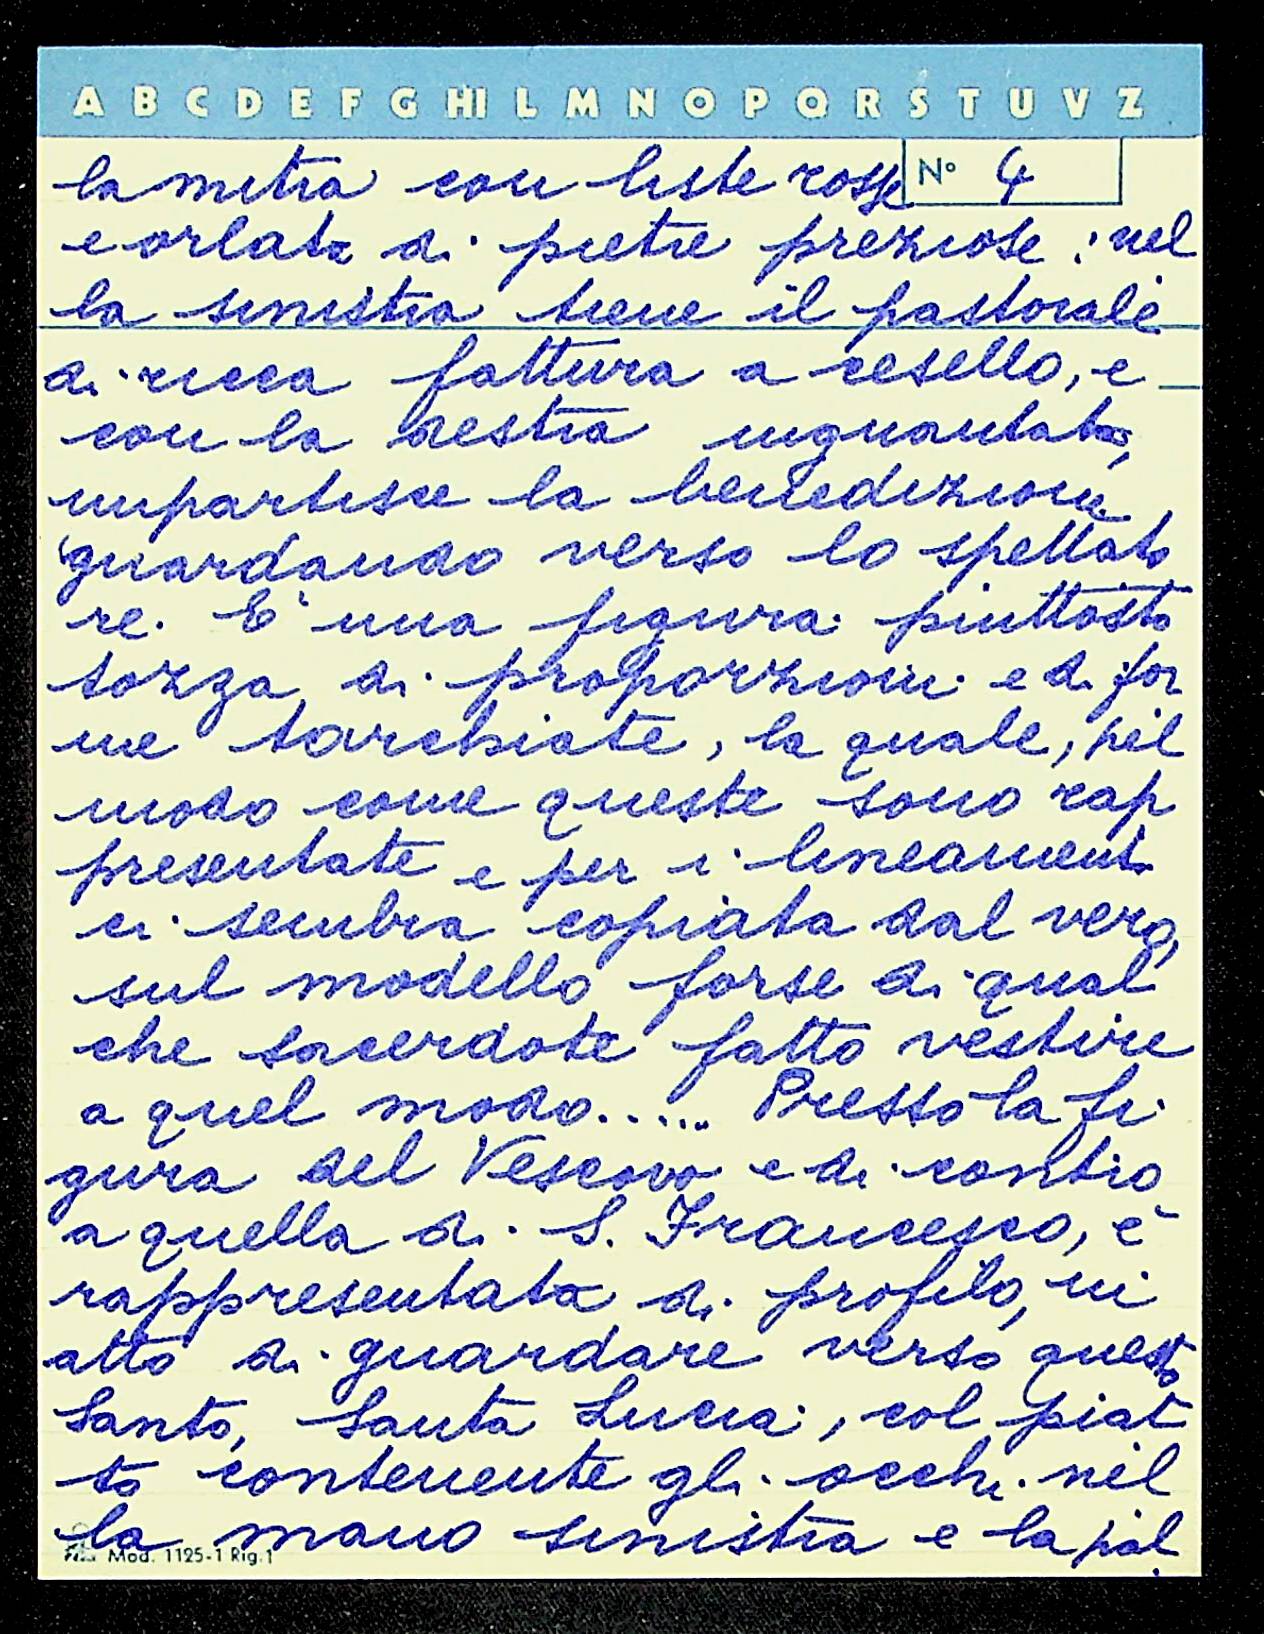 A B C D E F G HI L M N O P Q R S T U V Z
la mitra con liste rosse N° 4
e orlata di pietre preziose; nel
la sinistra tiene il pastorale
di ricca fattura a cesello, e
con la destra inguantata,
impartisce la benedizione,
guardando verso lo spettato
re. E' una figura piuttosto
tozza di proporzioni e di for
me tarchiate, la quale, pel
modo come queste sono rap
presentate e per i lineamenti
ci sembra copiata dal vero,
sul modello forse di qual
che sacerdote fatto vestire
a quel modo..... Presso la fi
gura del Vescovo e di contro
a quella di S. Francesco, è
rappresentata di profilo, in
atto di guardare verso questo
Santo, Santa Lucia, col piat
to contenente gli occhi nel
la mano sinistra e la pal
Mod. 1125-1 Rig.1